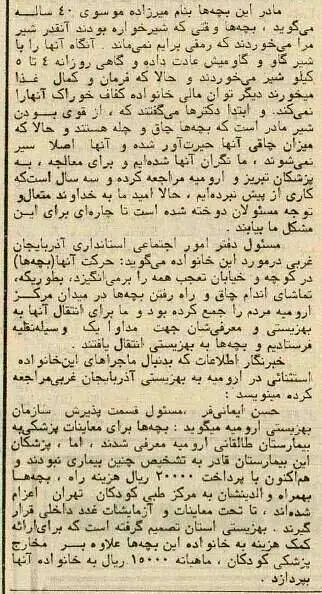 مادر این بچه‌ها بنام میرزاده موسوی ۴۰ ساله
می‌گوید ، بچه‌ها وقتی که شیرخواره بودند آنقدر شیر
مرا می‌خوردند که رمقی برایم نمی‌ماند . آنگاه آنها را با
شیر گاو و گاومیش عادت داده و گاهی روزانه ۴ تا ۵
کیلو شیر می‌خوردند و حالا که فرمان و کمال غذا
میخورند دیگر توان مالی خانواده کفاف خوراک آنها را
نمی‌کند . و ابتدا دکترها می‌گفتند که ، از قوی بودن
شیر مادر است که بچه‌ها چاق و چله هستند و حالا که
میزان چاقی آنها حیرت‌آور شده و آنها اصلا سیر
نمی‌شوند ، ما نگران آنها شده‌ایم و برای معالجه ، به
پزشکان تبریز و ارومیه مراجعه کرده و سه سال است‌که
کاری از پیش نبرده‌ایم ، حالا امید ما به خداوند متعال‌و
توجه مسئولان دوخته شده است تا چاره‌ای برای این
مشکل ما بیابند .
مسئول دفتر امور اجتماعی استانداری آذربایجان
غربی درمورد این خانواده می‌گوید: حرکت آنها(بچه‌ها)
در کوچه و خیابان تعجب همه را برمی‌انگیزد، بطوریکه،
تماشای اندام چاق و راه رفتن بچه‌ها در میدان مرکز
ارومیه مردم را جمع کرده بود و ما برای انتقال آنها به
بهزیستی و معرفی‌شان جهت مداوا یک وسیله‌نقلیه
فرستادیم و بچه‌ها به بهزیستی انتقال یافتند .
خبرنگار اطلاعات که بدنبال ماجراهای این‌خانواده
استثنائی در ارومیه به بهزیستی آذربایجان غربی‌مراجعه
کرده مینویسد :
حسن ایمانی‌فر ،مسئول قسمت پذیرش سازمان
بهزیستی ارومیه میگوید : بچه‌ها برای معاینات پزشکی‌به
بیمارستان طالقانی ارومیه معرفی شدند ، اما ، پزشکان
این بیمارستان قادر به تشخیص چنین بیماری نبودند و
هم‌اکنون با پرداخت ۲۰۰۰۰ ریال هزینه راه ، بچه‌ها
بهمراه والدینشان به مرکز طبی کودکان تهران اعزام
شده‌اند ، تا تحت معاینات و آزمایشات غدد داخلی قرار
گیرند . بهزیستی استان تصمیم گرفته است که برای‌ارائه
کمک هزینه به خانواده این بچه‌ها علاوه بر مخارج
پزشکی کودکان ، ماهیانه ۱۵۰۰۰ ریال به خانواده آنها
بپردازد .